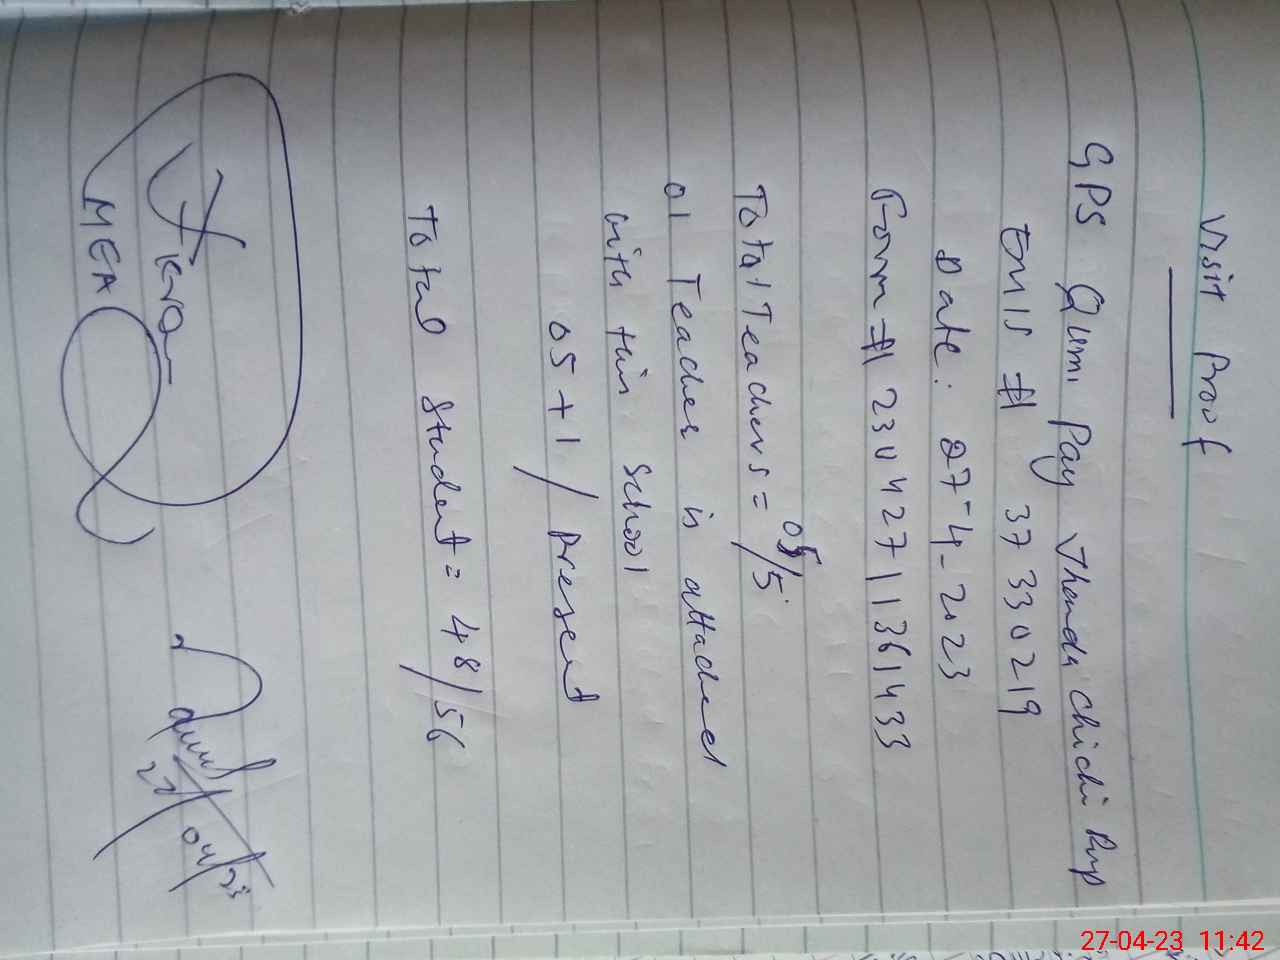 Visit Proof
GPS Qumi Pay Thanda Chichi
EMIS # 37330219
Date: 27-4-2023
Form # 23042711361433
Total Teachers = 05/5
01 Teacher is attached
with this school
05+1/ Present
Total Student = 48/56
MEA
27/04/23
27-04-23 11:42